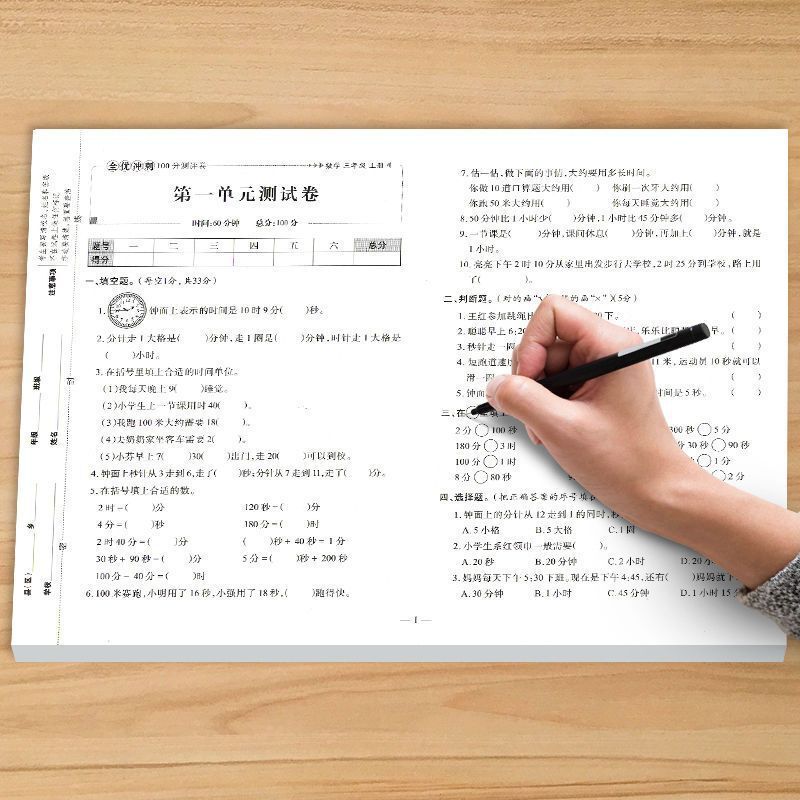 全优冲刺100分测评卷
数学 三年级 上册
第一单元测试卷
时间:60分钟 总分:100分
题号 一 二 三 四 五 六 总分
得分
一、填空题。(每空1分,共33分)
1. 钟面上表示的时间是10时9分( )秒。
2.分针走1大格是( )分钟,走1圈是( )分钟,时针走1大格是
( )小时。
3.在括号里填上合适的时间单位。
(1)我每天晚上9( )睡觉。
(2)小学生上一节课用时40( )。
(3)我跑100米大约需要18( )。
(4)去奶奶家坐客车需要2( )。
(5)小芬早上7( )30( )出门,走20( )可以到校。
4.钟面上秒针从3走到6,走了( )秒;分针从7走到11,走了( )分。
5.在括号填上合适的数。
2时=( )分 120秒=( )分
4分=( )秒 180分=( )时
2时40分=( )分 ( )秒+40秒=1分
30秒+90秒=( )分 5分=( )秒+200秒
100分-40分=( )时
6.100米赛跑,小明用了16秒,小强用了18秒,( )跑得快。
7.估一估,做下面的事情,大约要用多长时间。
你做10道口算题大约用( ) 你刷一次牙大约用( )
你跑50米大约用( ) 你每天睡觉大约用( )
8.50分钟比1小时少( )分钟,1小时比45分钟多( )分钟。
9.一节课是( )分钟,课间休息( )分钟,再加上( )分钟,就是
1小时。
10.亮亮下午2时10分从家里出发步行去学校,2时25分到学校,路上用
了( )。
二、判断题。(对的画“√”,错的画“×”)(5分)
1.王红参加跳绳比 下。 ( )
2.聪聪早上6:20 ,乐乐比聪聪 早。 ( )
3.秒针走一圈 ( )
4.短跑道速 米,运动员10秒就可以
滑一圈 ( )
5.钟面 时间是5秒。 ( )
三、在 里填上
2分○100秒 300秒○5分
180分○3时 分30秒○90秒
100分○1时 ○1分
8分○80秒 ○2分
四、选择题。(把正确答案的序号填
1.钟面上的分针从12走到1的同时,秒
A.5小格 B.5大格 C.1圈
2.小学生系红领巾一般需要( )。
A.20秒 B.20分钟 C.2小时 D.20小
3.妈妈每天下午5:30下班。现在是下午4:45,还有( )妈妈就下
A.30分钟 B.1小时 C.45分钟 D.1小时15分
— 1 —
注意事项
班级
年级
姓名
乡
县(区)
学校
密
封
线